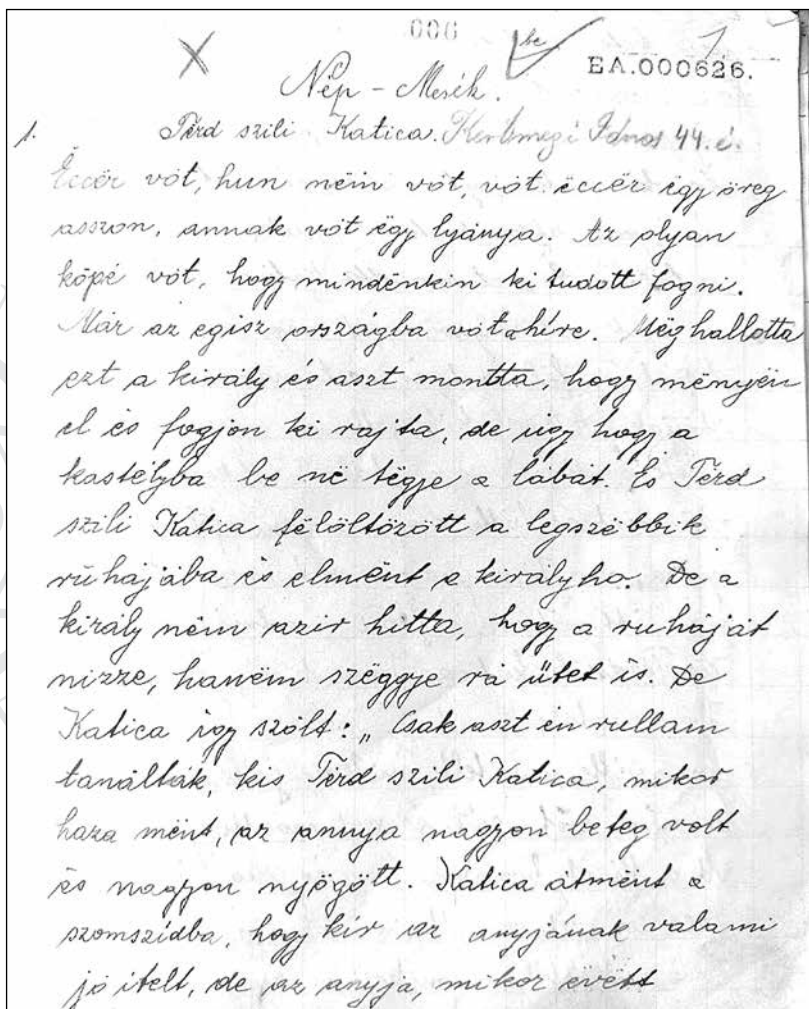 006
be
1
EA.000626.
Nép - Mesék.
1. Térd szili Katica. János 44. é.
Éccër vót, hun nëm vót, vót éccër ëgy öreg
asszon, annak vót ëgy lyánya. Az olyan
kópé vót, hogy mindënkin ki tudott fogni.
Már az egísz országba vót a híre. Mëghallotta
ezt a király és aszt montta, hogy mënyën
el és fogjon ki rajta, de úgy hogy a
kastélyba be në tëgje a lábát. És Térd
szili Katica fëlöltözött a legszëbbik
ruhájába és elmënt a királyho. De a
király nëm azír hítta, hogy a ruháját
nízze, hanëm szëggye rá űtet is. De
Katica így szólt: „Csak aszt én rullam
tanálták, kis Térd szili Katica, mikor
haza mënt, az annya nagyon beteg volt
és nagyon nyögött. Katica átmënt a
szomszídba, hogy kír az anyjának valami
jó ítelt, de az anyja, mikor ëvëtt